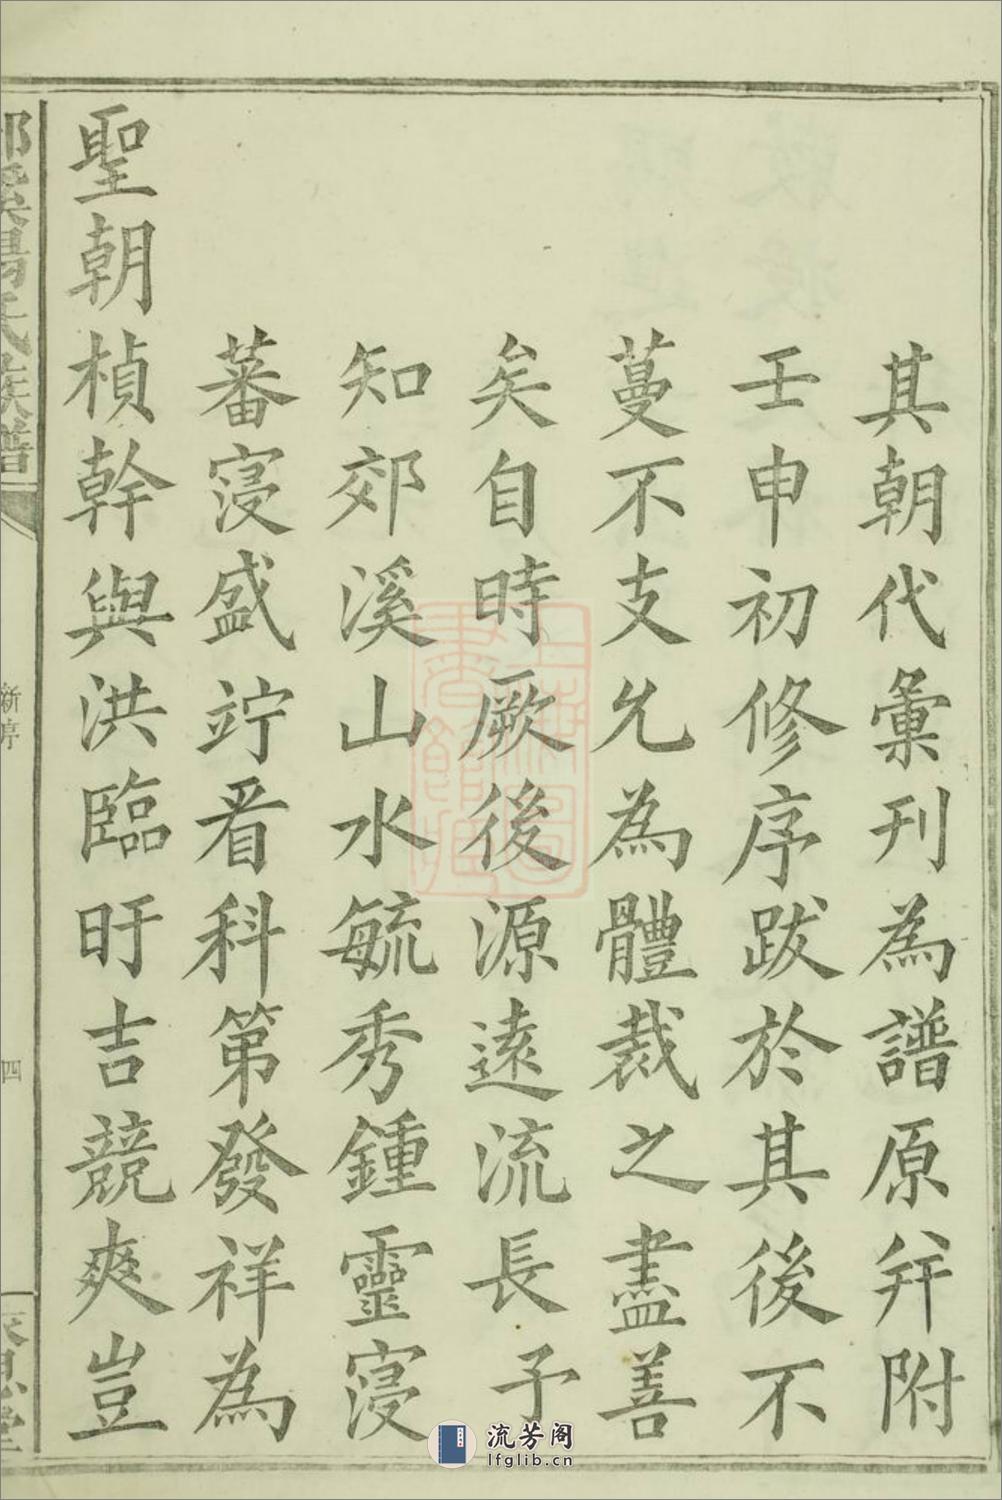 其朝代彙刊為譜原并附
壬申初修序跋於其後不
蔓不支允為體裁之盡善
矣自時厥後源遠流長予
知郊溪山水毓秀鍾靈寖
蕃寖盛竚看科第發祥為
聖朝楨幹與洪臨盱吉競爽豈
氏族譜
新序
四
流芳阁
lfglib.cn